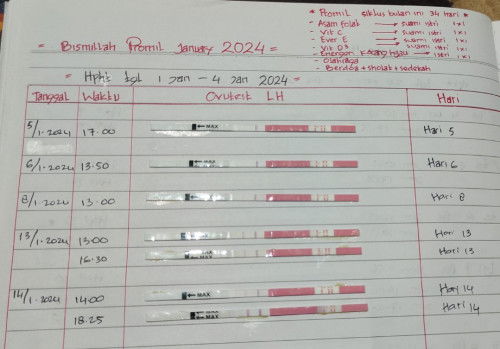 * Promil siklus bulan ini 34 hari *
- Asam folat → suami istri 1x1
- Vit C → suami istri 1x1
- Ever E → suami istri 1x1
- Vit D3 → suami istri 1x1
- Energen Kacang hijau → istri 1x1
- Olahraga
- Berdoa + sholat + sodekah
= Bismillah Promil January 2024 =
= Hpht tgl 1 Jan - 4 Jan 2024 =
Tanggal Waktu Ovutest LH Hari
5/1-2024 17.00 MAX Hari 5
6/1-2024 13.50 MAX Hari 6
8/1-2024 13.00 MAX Hari 8
13/1-2024 13.00 MAX Hari 13
16.30 MAX Hari 13
14/1-2024 14.00 MAX Hari 14
18.25 MAX Hari 14